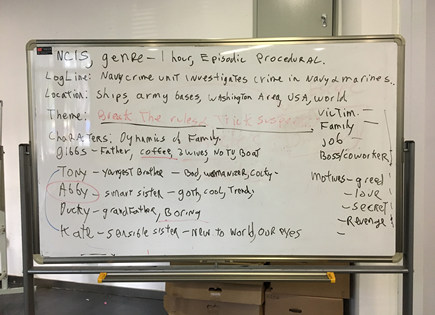 NCIS, genre - 1 hour, Episodic Procedural.
LogLine: Navy crime unit investigates crime in Navy & marines.
Location: Ships, army bases, Washington Area, USA, world
Theme: Break the rules
Characters: Dynamics of Family.
Gibbs - Father, coffee, wives NO TV Boat
Tony - youngest Brother - womanizer, cocky
Abby - smart sister - goth, cool, trendy
Ducky - grandfather, Boring
Kate - sensible sister - New to world, our eyes
Victim
Family
Job
Boss/coworker
Motives - greed
- love
- secret
- Revenge
-